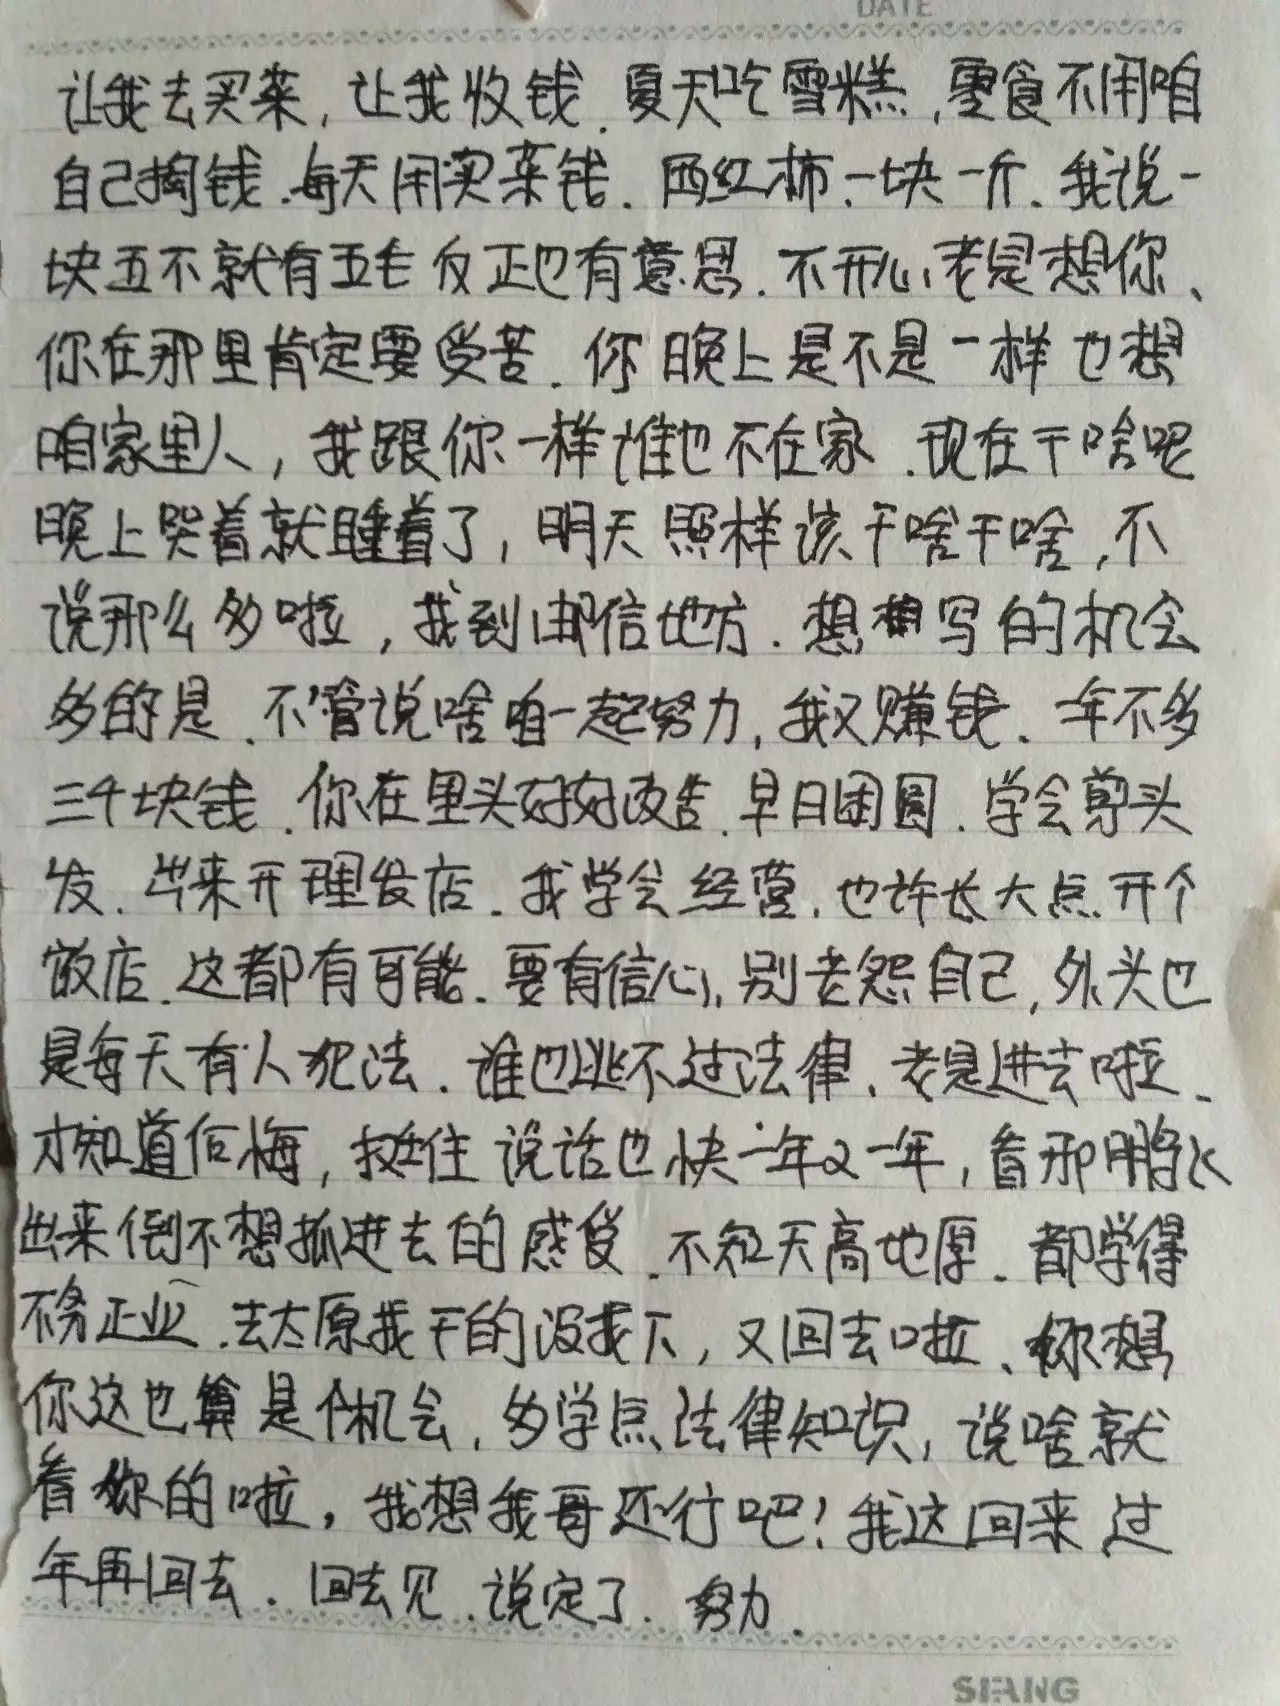 DATE
让我去买菜，让我收钱．夏天吃雪糕，零食不用咱
自己掏钱．每天用买菜钱．西红柿、一块一斤、我说一
块五不就有五毛反正也有意思．不开心老是想你、
你在那里肯定要受苦．你晚上是不是一样也想
咱家里人，我跟你一样谁也不在家．现在干啥呢
晚上哭着就睡着了，明天照样该干啥干啥，不
说那么多啦，我到邮信地方．想想写的机会
多的是．不管说啥咱一起努力，我又赚钱、一年不多
三千块钱、你在里头好好改造．早日团圆．学会剪头
发．出来开理发店．我学会经营，也许长大点开个
饭店．这都有可能．要有信心，别老怨自己，外头也
是每天有人犯法．谁也逃不过法律、老是进去啦、
才知道后悔，挺住说话也快一年又一年，看那鹏飞
出来倒不想抓进去的感受．不知天高地厚．都学得
不务正业．去太原我干的没找下，又回去啦、你想
你这也算是个机会，多学点法律知识，说啥就
看你的啦，我想我哥还行吧！我这回来过
年再回去．回去见．说定了．努力．
SIFANG